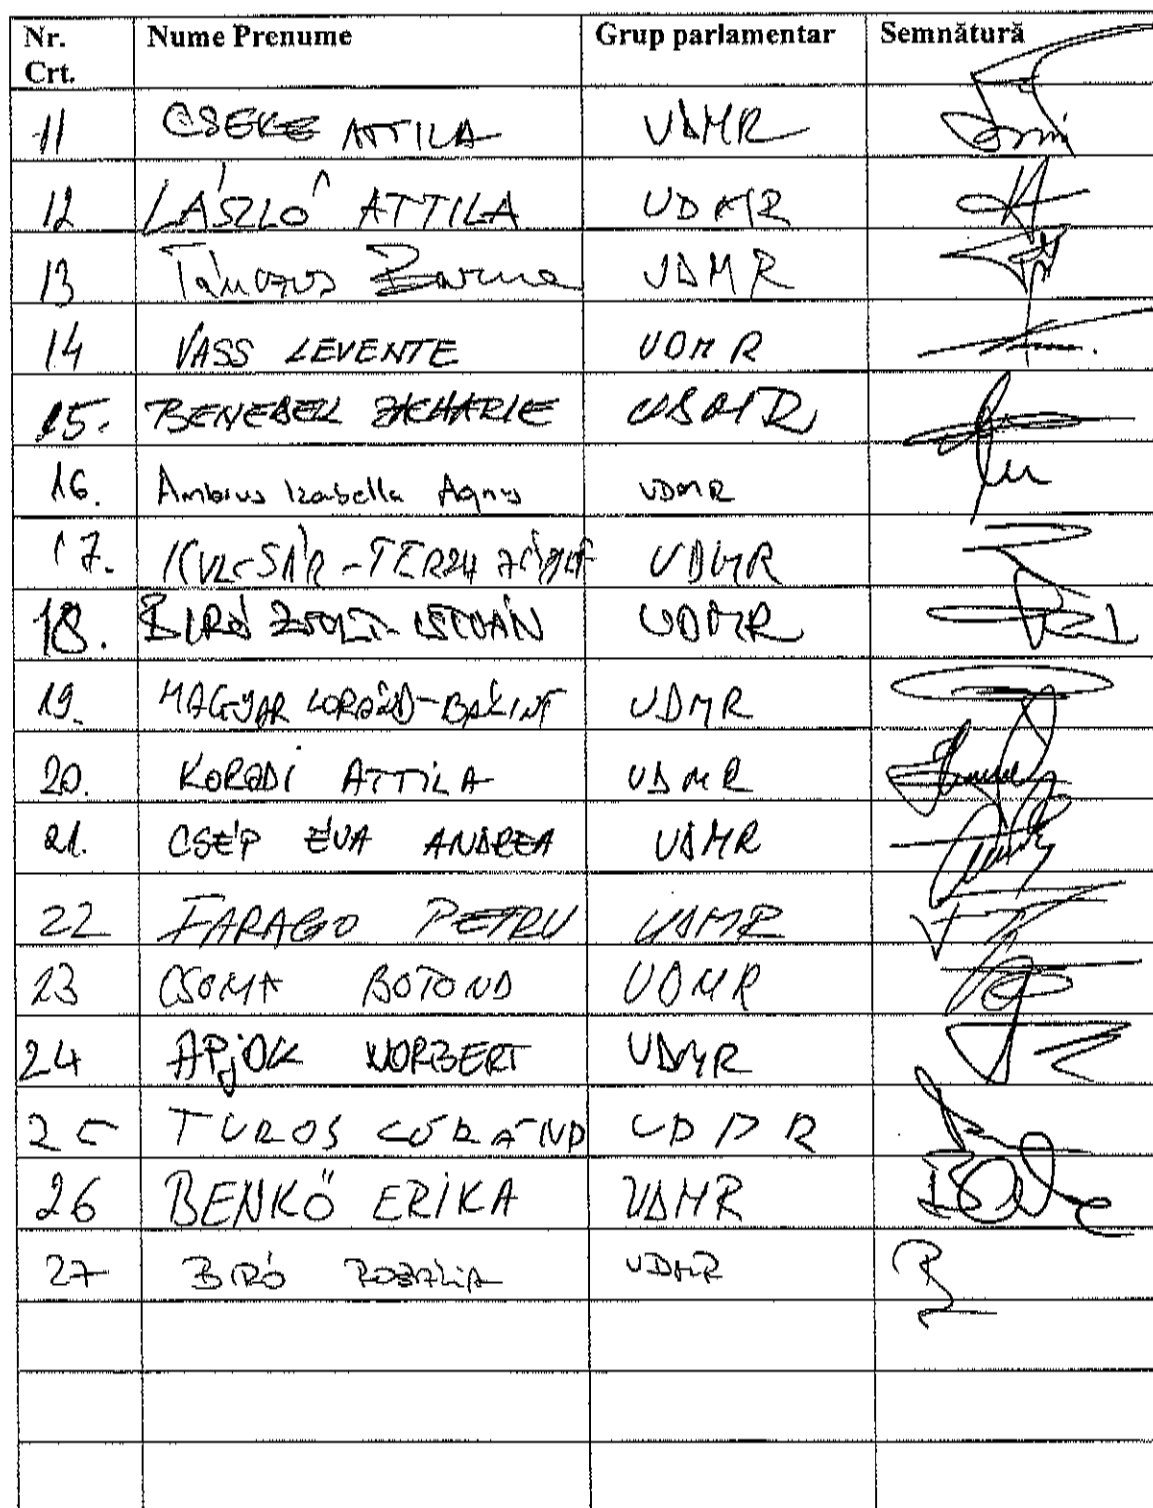 Nr. Crt. Nume Prenume Grup parlamentar Semnătură
11 CSEKE ATTILA UDMR
12 LÁSZLÓ ATTILA UDMR
13 Tánczos Barna UDMR
14 VASS LEVENTE UDMR
15. BENEDEK ZACHARIE UDMR
16. Ambrus Izabella Agnes UDMR
17. KULCSÁR-TERZA UDMR
18. BIRÓ ZSOLT-ISTVÁN UDMR
19. MAGYAR LORÁND-BÁLINT UDMR
20. KORODI ATTILA UDMR
21. CSÉP ÉVA ANDREA UDMR
22 FARAGO PETRU UDMR
23 CSOMA BOTOND UDMR
24 APJOK NORBERT UDMR
25 TUROS LÓRÁND UDMR
26 BENKŐ ERIKA UDMR
27 BIRÓ ROZÁLIA UDMR